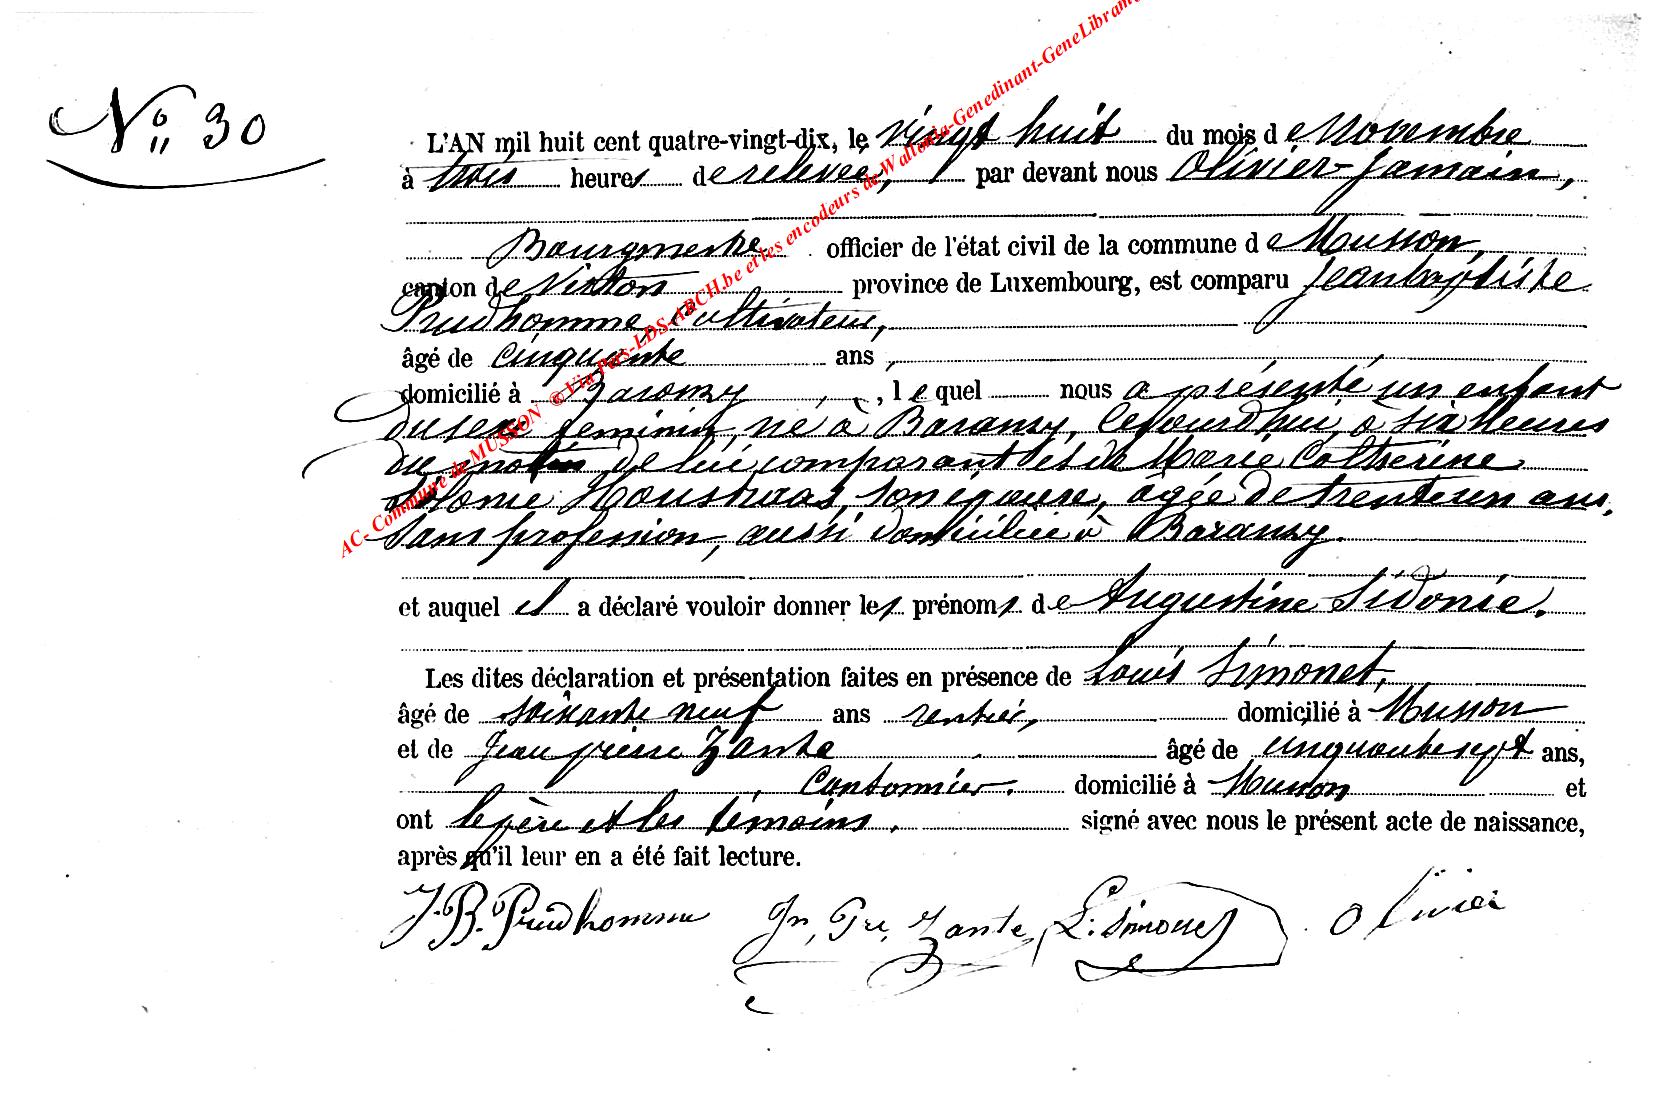 N° 30
L'AN mil huit cent quatre-vingt-dix, le vingt huit du mois de Novembre
à trois heures de relevée, par devant nous Olivier Jamain,
Bourgmestre officier de l'état civil de la commune de Musson,
canton de Virton province de Luxembourg, est comparu Jean baptiste
Prudhomme, Cultivateur,
âgé de cinquante ans,
domicilié à Baranzy, lequel nous a présenté un enfant
du sexe feminin, né à Baranzy, cejourd'hui, à six heures
du matin, de lui comparant et de Marie Catherine
son épouse, âgée de trente un ans,
sans profession, aussi domiciliée à Baranzy.
et auquel il a déclaré vouloir donner les prénoms de Augustine Sidonie.
Les dites déclaration et présentation faites en présence de Louis Simonet,
âgé de soixante neuf ans rentier, domicilié à Musson
et de Jean pierre Zante âgé de cinquante sept ans,
Cantonnier. domicilié à Musson et
ont le père et les témoins. signé avec nous le présent acte de naissance,
après qu'il leur en a été fait lecture.
J. B. Prudhomme Jn, Pre, Zante L: Simonet Olivier
AC- Commune de MUSSON © Via Pers-LDS-ARCH.be et les encodeurs de Wallonia-Genedinant-GeneLibram